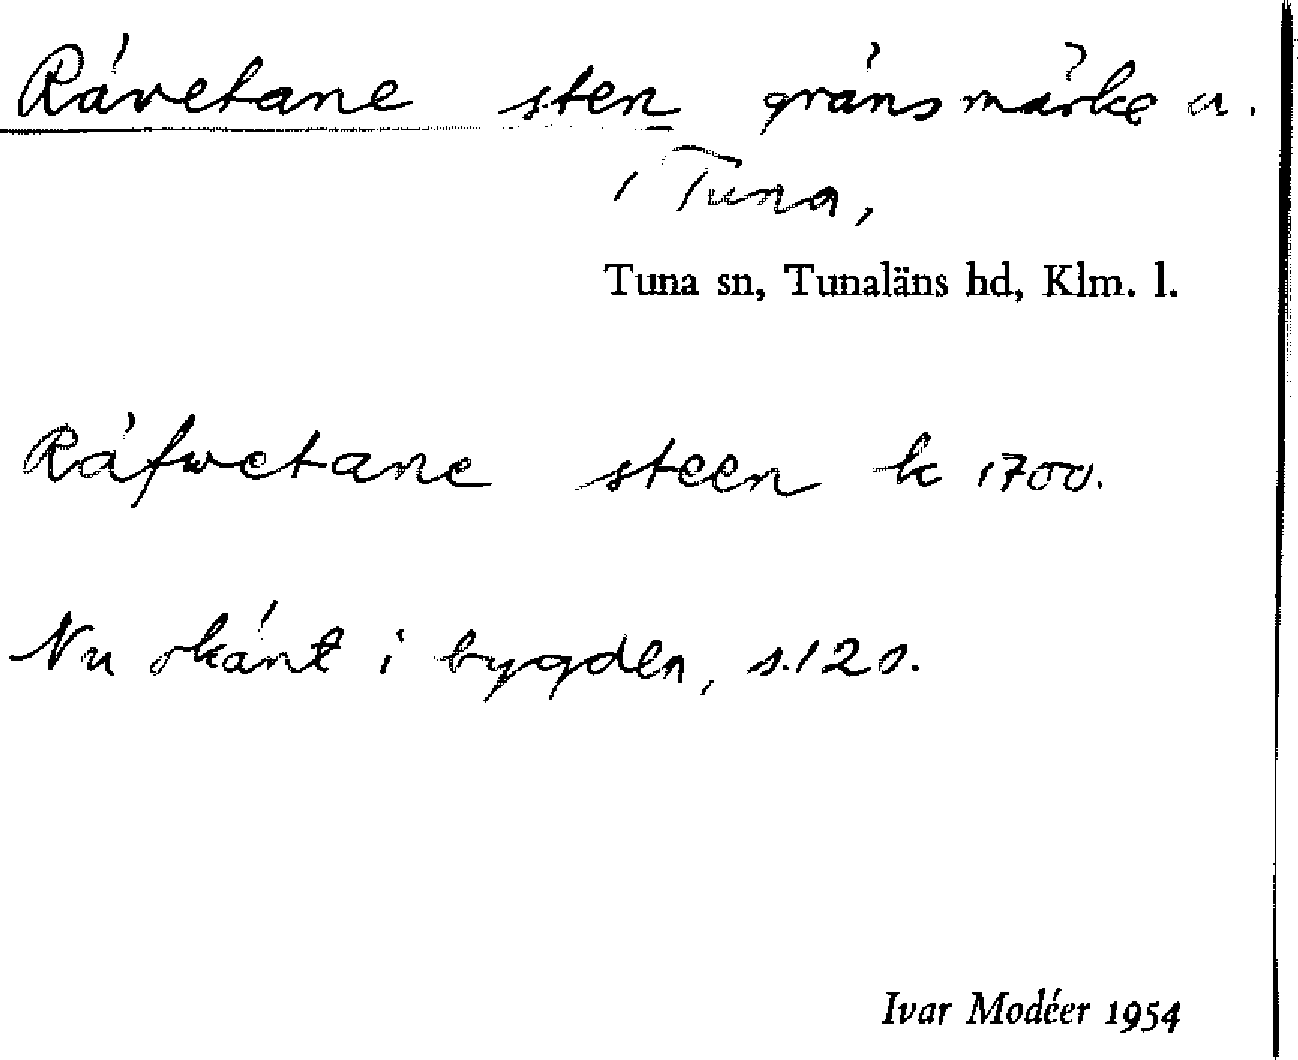 Rävetane sten gränsmärke u.
i Tuna,
Tuna sn, Tunaläns hd, Klm. l.
Räfwetane steen k 1700.
Nu okänt i bygden, s.120.
Ivar Modéer 1954